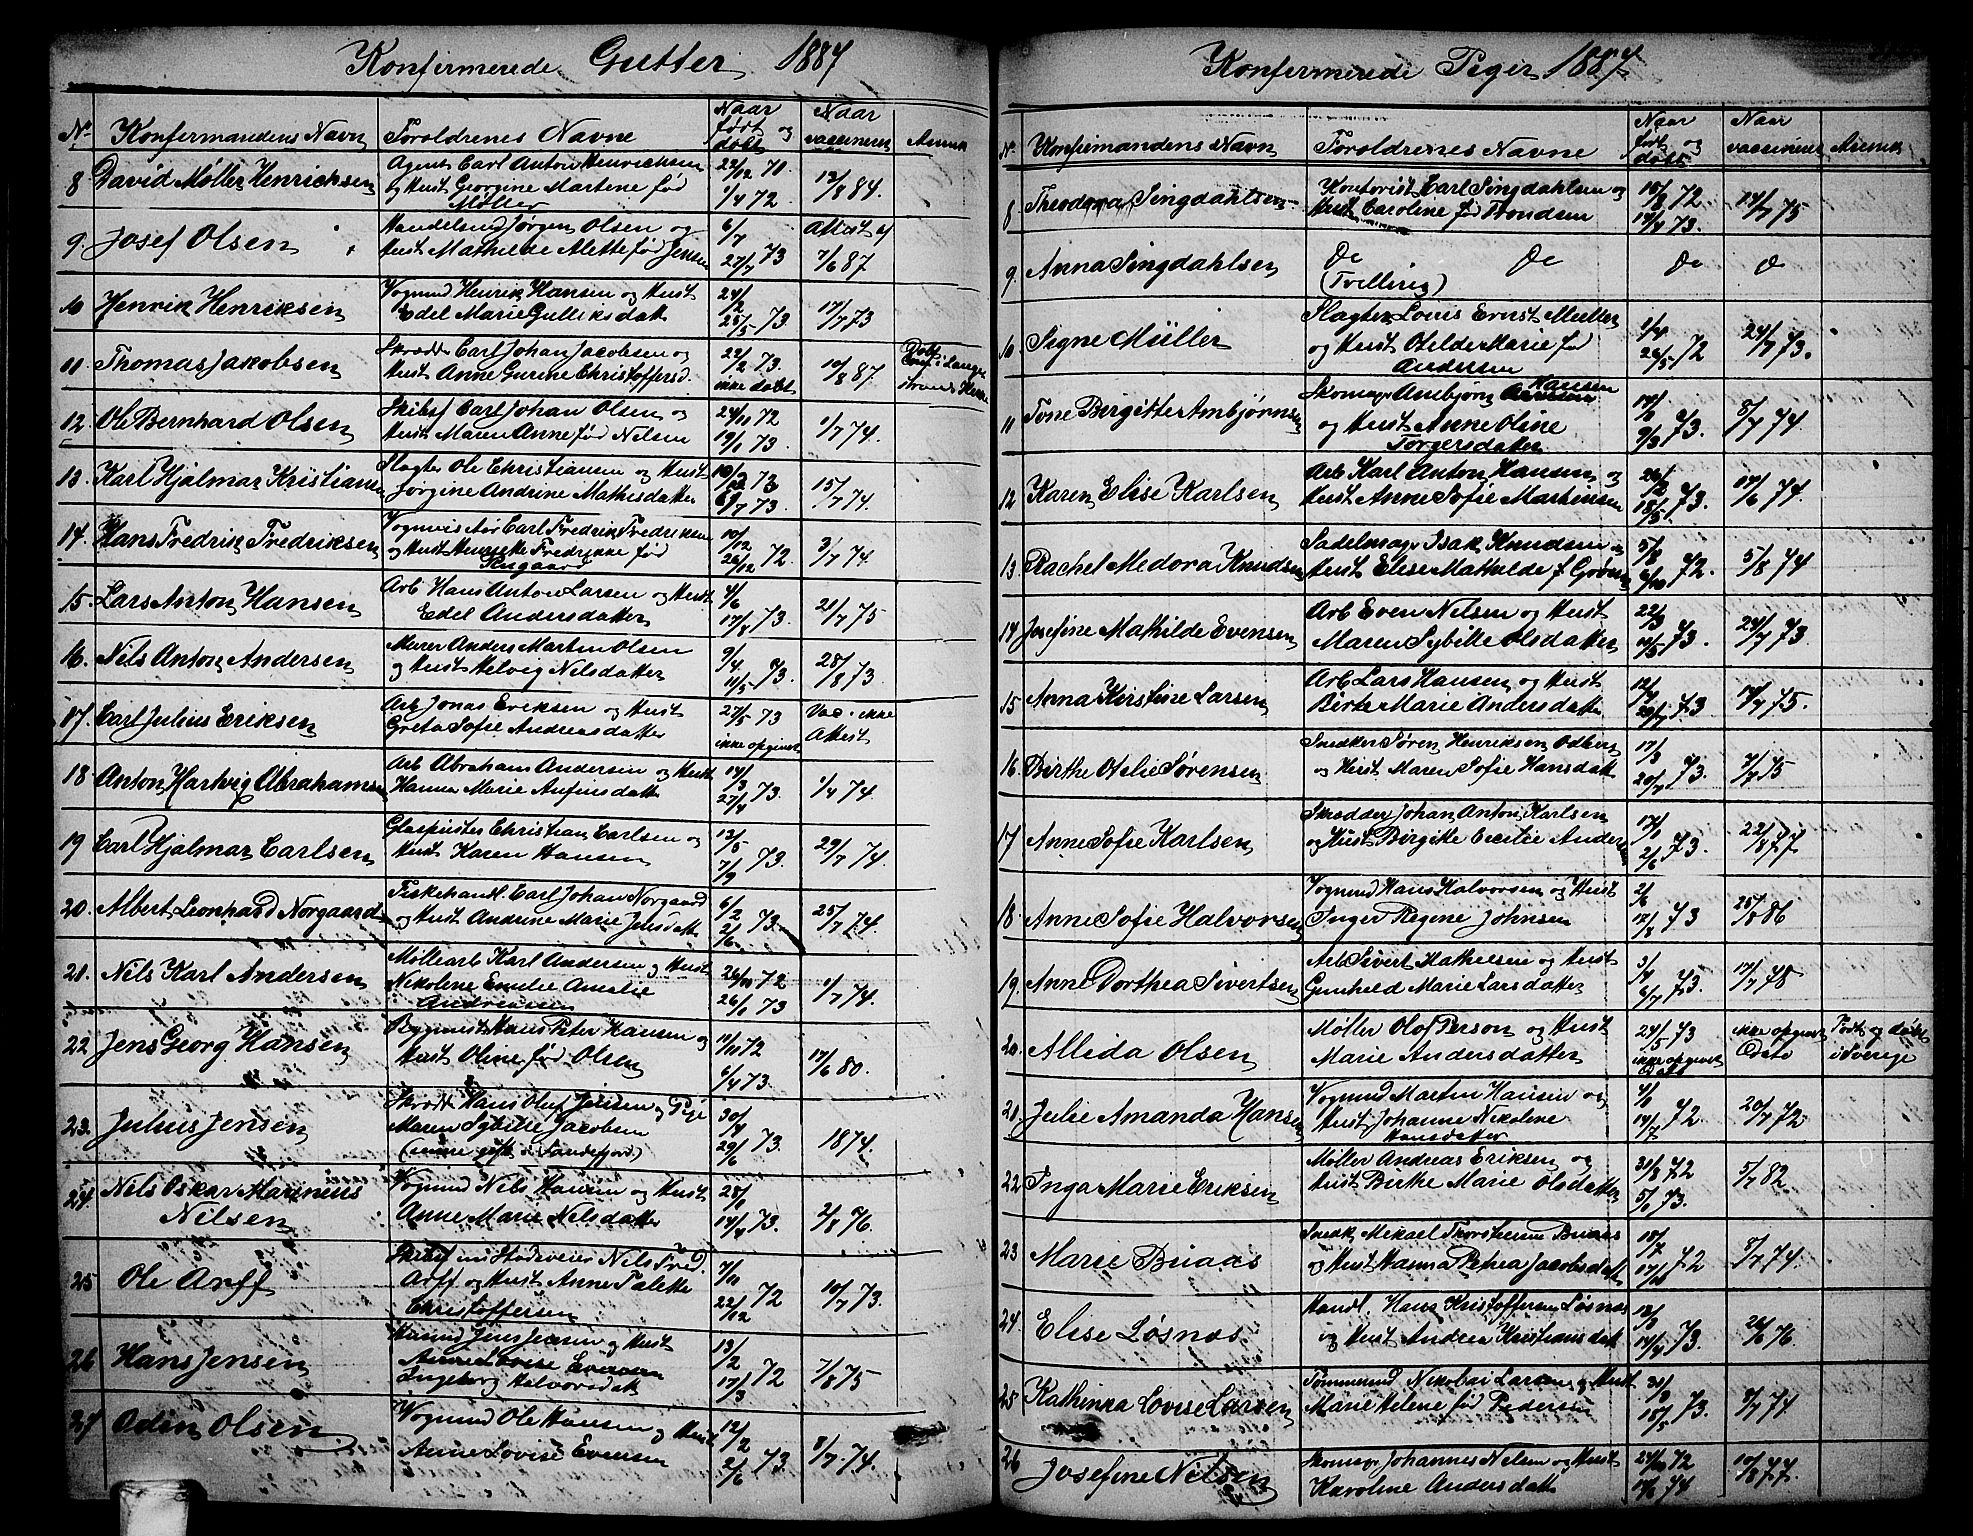 Konfirmerede Gutter 1887
No. Konfirmandens Navn Foroldrenes Navne Naar født og døbt Naar vaccineret Anmæ
8 David Møller Henriksen Agent Carl Anton Henrichsen 22/12 70. 12/8 84.
og Hust Georgine Martene fød 1/4 72
Møller
9. Josef Olsen Handelsmd Jørgen Olsen og 6/7 Attest af
Hust Mathilde Alette fød Jensen 27/7 73 7/6 87
10 Henrik Henriksen Vognmd Henrik Hansen og Hust 24/2 17/7 73
Edel Marie Gulliksdatt 25/5 73
11 Thomas Jakobsen Skrædd Carl Johan Jacobsen og 22/2 73. 10/8 87
Hust Anne Gurine Christoffersd. ikke døbt
12. Ole Bernhard Olsen Skibsf Carl Johan Olsen og 24/11 72 1/7 74.
Hust Maren Anne fød Nilsen 19/1 73.
13. Karl Hjalmar Kristiansen Slagter Ole Christiansen og Hust 73 15/7 74.
Jørgine Andrine Mathisdatter 6/7 73.
14. Hans Fredrik Fredriksen Carl Fredrik Fredriksen 10/12 3/7 74.
og Hust Henriette Fredrikke fød 26/12 72.
15. Lars Anton Hansen Arb Hans Anton Larsen og Hust 4/6 21/7 75
Edel Andersdatter 17/8 73.
16. Nils Anton Andersen Murer Anders Martin Olsen 9/4. 28/8 73
og Hust Helvig Nilsdatter 11/5 73.
17. Carl Julius Eriksen Arb Jonas Eriksen og Hust 27/5 73 Vac. ikke
Greta Sofie Andreasdatter ikke opgivet Attest
18 Anton Hartvig Abrahamsen Arb Abraham Andersen og Hust 14/3 1/4 74.
Hanna Marie Anfinsdatt 27/4 73.
19 Carl Hjalmar Carlsen Glaspuster Christian Carlsen og 12/5 29/7 74.
Hust Karen Hansen 7/9 73.
20. Albert Leonhard Norgaard Fiskehandl. Carl Johan Norgaard 6/2 25/7 74.
og Hust Andrine Marie Jensdatt 2/6 73.
21. Nils Karl Andersen Møllearb Karl Andersen og Hust 26/10 72 1/7 74.
Nikoline Emilie Amalie 26/1 73
Andreassen
22 Jens Georg Hansen Bygmest Hans Peter Hansen og 11/11 72 17/6 80.
Hust Oline fød Olsen 6/4 73.
23. Julius Jensen Skrædd Hans Oluf Jensen og Pige 30/4 1874.
Maren Sybille Jacobsen 29/6 73.
( gift i Sandefjord)
24. Nils Oskar Marinius Vognmd Nils Hansen og Hust 25/1 2/8 76.
Nilsen Anne Marie Nilsdatter 14/4 73.
25 Ole Arff Nils Fred. 7/11 10/7 73.
Arff og Hust Anne Palette 22/12 72
Christoffersen
26 Hans Jensen Jens Jensen og Hust 13/2 7/8 75
Anne Lovise Evensen 17/3 72
Ingeborg Halvorsdatt
27 Odin Olsen Vognmd Ole Hansen og Hust 12/2 8/7 74.
Anne Lovise Evensen 2/6 73
Konfirmerede Piger 1887
No. Konfirmandens Navn Foroldrenes Navne Naar født og døbt Naar vaccinerede Anmæ
8 Theodora Singdahlsen Kontorist Carl Singdahlsen og 15/8 72 14/7 75
Hust Caroline fød Trondsen 14/4 73.
9. Anna Singdahlsen Do Do Do Do
(Tvilling)
10 Signe Müller Slagter Louis Ernst Muller 1/4 24/7 73.
og Hust Marie fød 26/5 72
Andersen
11 Tone Birgitte Ambjørnsen Skomagr Ambjørn Hansen 8/7 74.
og Hust Anne Oline 9/3 73.
Torgersdatter
12 Karen Elise Karlsen Arb Karl Anton Hansen og 26/2 17/6 74.
Hust Anne Sofie Mathisen 18/5 73.
13 Rachel Medora Knudsen Sadelmagr Isak Knudsen og 5/8 5/8 74
Hust Elise Mathilde f. 6/10 72.
14 Josefine Mathilde Evensen Arb Even Nilsen og Hust 22/3 24/7 73
Maren Sybille Olsdatter 73.
15 Anna Kirstine Larsen Arb Lars Hansen og Hust 14/7 75.
Birte Marie Andersdatt 20/7 73
16 Birthe Otelie Sørensen Snedker Søren Henriksen Odberg 17/3 75
og Hust Maren Sofie Hansdatt 20/4 73.
17 Anne Sofie Karlsen Skrædder Johan Anton Karlsen 17/1 22/8 77
og Hust Birgitte Cecilie Anders 2/6 73.
18 Anne Sofie Halvorsen Vognmd Hans Halvorsen og Hust 2/6 25/8 86
Inger Regine Johnsen 17/8 73
19. Anne Dorthea Sivertsen Arb Sivert Mathisen og Hust 3/4 17/7 78
Gunhild Marie Larsdatter 6/7 73.
20. Allida Olsen Møller Olof Person og Hust 24/5 73 ikke opgivet Født og døbt
Marie Andersdatter ikke opgivet i Sverige
21. Julie Amanda Hansen Vognmd Martin Hansen og 20/7 72
Hust Johanne Nikoline 14/7 72.
Hansdatter
22 Inga Marie Eriksen Møller Andreas Eriksen og 31/8 72 5/7 82
Hust Birthe Marie Olsdatter 5/1 73.
23 Marie Buaas Snedk Mikael Thorstensen Buaas 18/7 8/7 74.
og Hust Hanna Petrea Jacobsdatt 17/10 72
24. Elise Løsnæs Handl. Hans Kristoffersen Løsnæs 26/6 76
og Hust Andrea Kristiansdatt 14/4 73.
25 Kathinka Lovise Larsen Tømmermd Nikolai Larsen og Hust 31/3 8/7 74.
Marie Helene fød Pedersen 18/5 73.
26 Josefine Nilsen Skomagr Johannes Nilsen og Hust 24/10 72 10/8 77.
Karoline Andersdatt 74